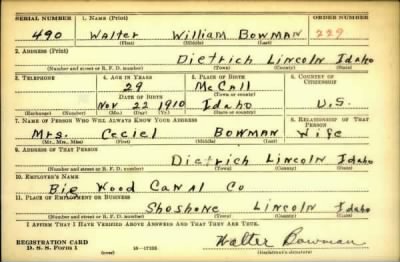 SERIAL NUMBER 1. NAME (Print) ORDER NUMBER
490 Walter William BOWMAN 229
(First) (Middle) (Last)
2. ADDRESS (Print)
Dietrich Lincoln Idaho
(Number and street or R. F. D. number) (Town) (County) (State)
3. TELEPHONE 4. AGE IN YEARS 5. PLACE OF BIRTH 6. COUNTRY OF CITIZENSHIP
29 McCall
DATE OF BIRTH (Town or county)
Nov 22 1910 Idaho U.S.
(Exchange) (Number) (Mo.) (Day) (Yr.) (State or country)
7. NAME OF PERSON WHO WILL ALWAYS KNOW YOUR ADDRESS 8. RELATIONSHIP OF THAT PERSON
Mrs. Ceciel BOWMAN Wife
(Mr., Mrs., Miss) (First) (Middle) (Last)
9. ADDRESS OF THAT PERSON
Dietrich Lincoln Idaho
(Number and street or R. F. D. number) (Town) (County) (State)
10. EMPLOYER'S NAME
Big Wood Canal Co
11. PLACE OF EMPLOYMENT OR BUSINESS
Shoshone Lincoln Idaho
(Number and street or R. F. D. number) (Town) (County) (State)
I AFFIRM THAT I HAVE VERIFIED ABOVE ANSWERS AND THAT THEY ARE TRUE.
REGISTRATION CARD
D. S. S. Form 1 16—17105 Walter Bowman
(Registrant's signature)